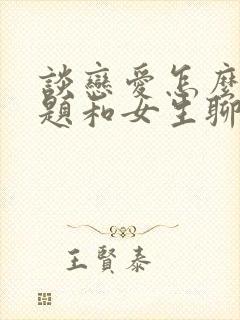 談戀愛怎麼
題和女生聊
王賢泰